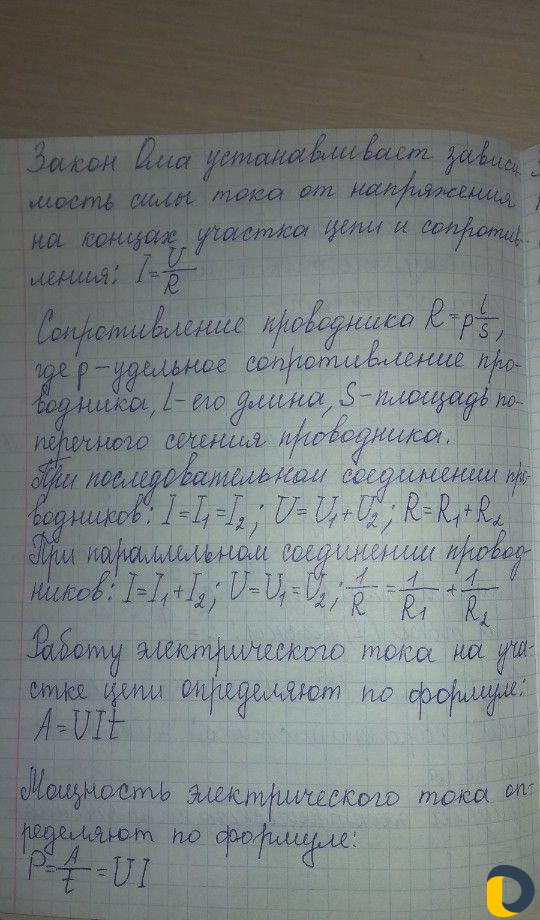 Закон Ома устанавливает зависи-
мость силы тока от напряжения
на концах участка цепи и сопротив-
ления: I = U/R
Сопротивление проводника R = р l/S,
где р – удельное сопротивление про-
водника, l – его длина, S – площадь по-
перечного сечения проводника.
При последовательном соединении про-
водников: I = I₁ = I₂; U = U₁ + U₂; R = R₁ + R₂
При параллельном соединении провод-
ников: I = I₁ + I₂; U = U₁ = U₂; 1/R = 1/R₁ + 1/R₂
Работу электрического тока на уча-
стке цепи определяют по формуле:
A = UIt
Мощность электрического тока оп-
ределяют по формуле:
P = A/t = UI